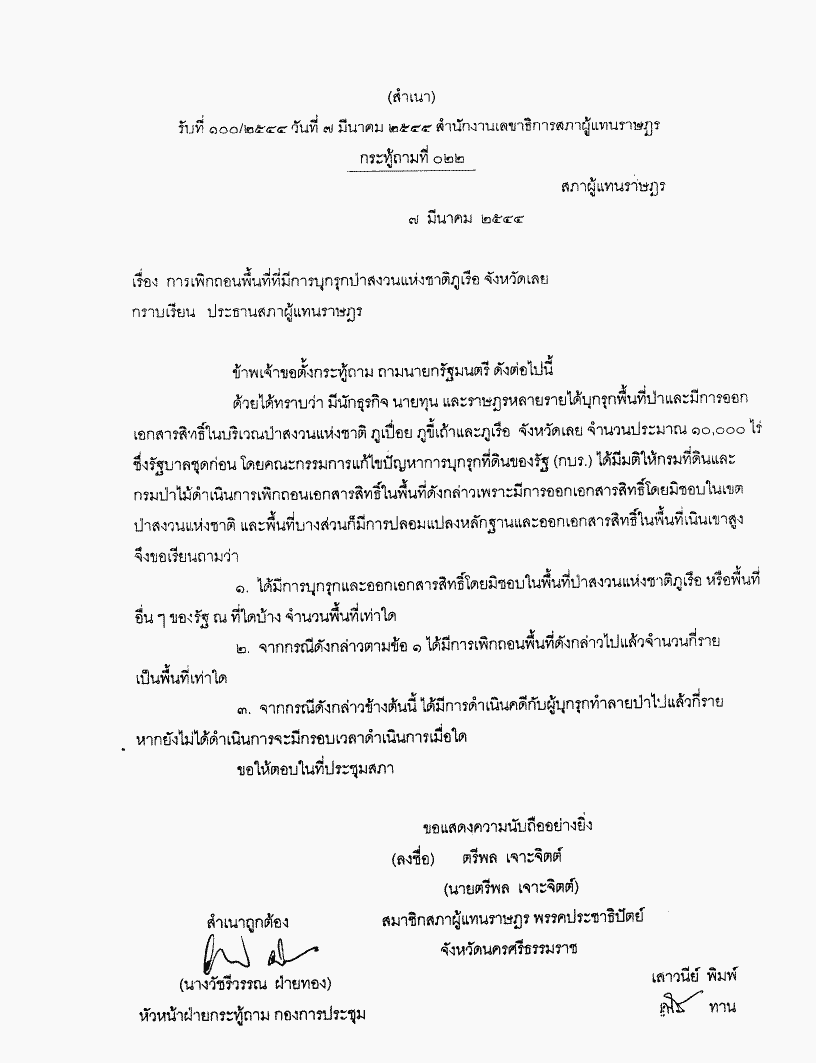 (สำเนา)
รับที่ ๑๐๐/๒๕๔๔ วันที่ ๗ มีนาคม ๒๕๔๔ สำนักงานเลขาธิการสภาผู้แทนราษฎร
กระทู้ถามที่ ๐๒๒
สภาผู้แทนราษฎร
๗ มีนาคม ๒๕๔๔
เรื่อง การเพิกถอนพื้นที่ที่มีการบุกรุกป่าสงวนแห่งชาติภูเรือ จังหวัดเลย
กราบเรียน ประธานสภาผู้แทนราษฎร
ข้าพเจ้าขอตั้งกระทู้ถาม ถามนายกรัฐมนตรี ดังต่อไปนี้
ด้วยได้ทราบว่า มีนักธุรกิจ นายทุน และราษฎรหลายรายได้บุกรุกพื้นที่ป่าและมีการออก
เอกสารสิทธิ์ในบริเวณป่าสงวนแห่งชาติ ภูเปือย ภูขี้เถ้าและภูเรือ จังหวัดเลย จำนวนประมาณ ๑๐,๐๐๐ ไร่
ซึ่งรัฐบาลชุดก่อน โดยคณะกรรมการแก้ไขปัญหาการบุกรุกที่ดินของรัฐ (กบร.) ได้มีมติให้กรมที่ดินและ
กรมป่าไม้ดำเนินการเพิกถอนเอกสารสิทธิ์ในพื้นที่ดังกล่าวเพราะมีการออกเอกสารสิทธิ์โดยมิชอบในเขต
ป่าสงวนแห่งชาติ และพื้นที่บางส่วนก็มีการปลอมแปลงหลักฐานและออกเอกสารสิทธิ์ในพื้นที่เนินเขาสูง
จึงขอเรียนถามว่า
๑. ได้มีการบุกรุกและออกเอกสารสิทธิ์โดยมิชอบในพื้นที่ป่าสงวนแห่งชาติภูเรือ หรือพื้นที่
อื่น ๆ ของรัฐ ณ ที่ใดบ้าง จำนวนพื้นที่เท่าใด
๒. จากกรณีดังกล่าวตามข้อ ๑ ได้มีการเพิกถอนพื้นที่ดังกล่าวไปแล้วจำนวนกี่ราย
เป็นพื้นที่เท่าใด
๓. จากกรณีดังกล่าวข้างต้นนี้ ได้มีการดำเนินคดีกับผู้บุกรุกทำลายป่าไปแล้วกี่ราย
หากยังไม่ได้ดำเนินการจะมีกรอบเวลาดำเนินการเมื่อใด
ขอให้ตอบในที่ประชุมสภา
ขอแสดงความนับถืออย่างยิ่ง
(ลงชื่อ) ตรีพล เจาะจิตต์
(นายตรีพล เจาะจิตต์)
สำเนาถูกต้อง สมาชิกสภาผู้แทนราษฎร พรรคประชาธิปัตย์
จังหวัดนครศรีธรรมราช
(นางวัชรีวรรณ ฝ่ายทอง) เสาวนีย์ พิมพ์
หัวหน้าฝ่ายกระทู้ถาม กองการประชุม ทาน